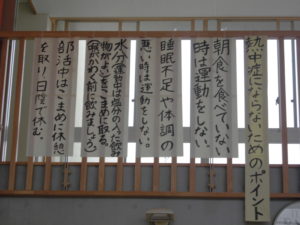 熱中症にならないためのポイント
朝食を食べていない
時は運動をしない。
睡眠不足や体調の
悪い時は運動をしない。
水分(運動中は塩分の入った飲み
物がよい)をこまめに取る。
(喉がかわく前に飲みましょう)
部活中はこまめに休憩
を取り、日陰で休む。